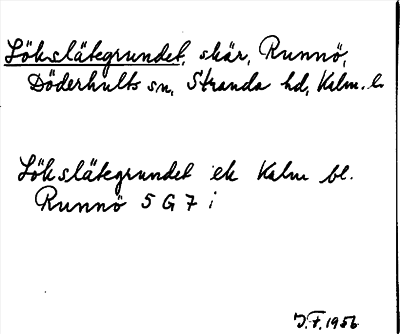 Lökslätegrundet, skär, Runnö,
Döderhults sn, Stranda hd, Kalm. l.
Lökslätegrundet ek Kalm bl.
Runnö 5 G 7 i
J.F. 1956